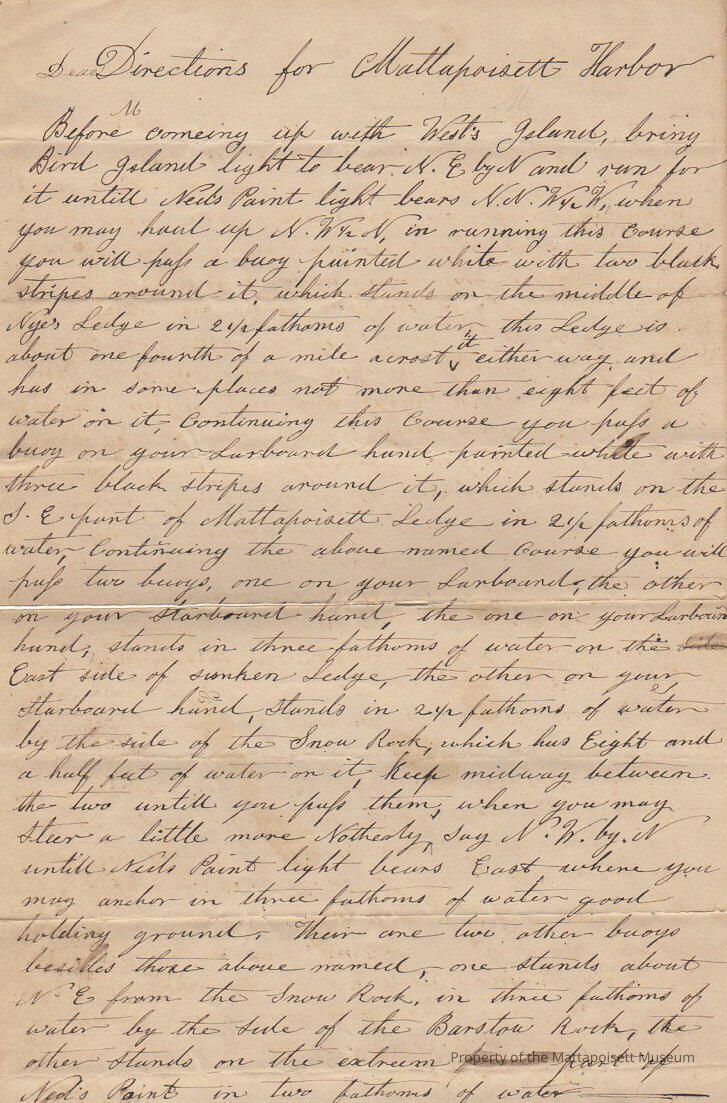 Dear Directions for Mattapoisett Harbor
M
Before comeing up with West's Island, bring
Bird Island light to bear N. E by N and run for
it untill Neds Point light bears N.N.W½W, when
you may haul up N.W½N, in running this Course
you will pass a buoy painted white with two black
stripes around it, which stands on the middle of
Nye's Ledge in 2½ fathoms of water, this Ledge is
about one fourth of a mile acrost it either way, and
has in some places not more than eight feet of
water on it, Continuing this Course you pass a
buoy on your Larboard hand painted white with
three black stripes around it, which stands on the
S. E part of Mattapoisett Ledge in 2½ fathoms of
water, Continuing the above named Course you will
pass two buoys, one on your Larboard, the other
on your starboard hand, the one on your Larboard
hand, stands in three fathoms of water on the side
East side of sunken Ledge, the other on your
starboard hand, stands in 2½ fathoms of water
by the side of the Snow Rock, which has Eight and
a half feet of water on it, Keep midway between
the two untill you pass them, when you may
steer a little more Notherly, say N. W. by. N
untill Neds Point light bears East, where you
may anchor in three fathoms of water good
holding ground, Their are two other buoys
besides those above named, one stands about
N. E from the Snow Rock, in three fathoms of
water by the side of the Barstow Rock, the
other stands on the extreem part of
Ned's Point in two fathoms of water
Property of the Mattapoisett Museum